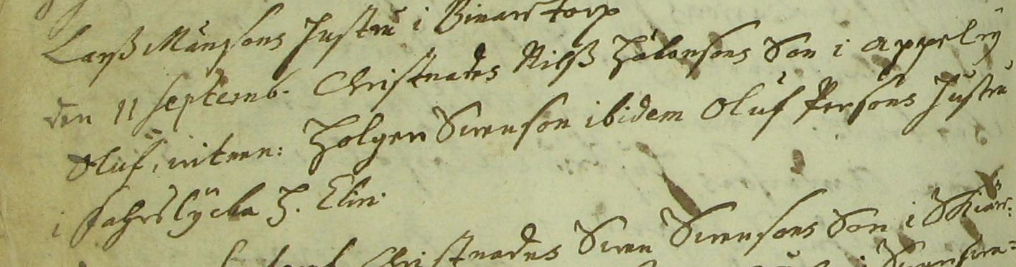 Larß Månsons hustru i Binaretorp
den 11 Septemb. Christnades Nilß Håkonsons Son i Appelrÿ
Oluf, vitnen: Holger Svenson ibidem Oluf Persons hustru
i Fahrslÿcka H. Elin
Christnades Sven Svensons Son i